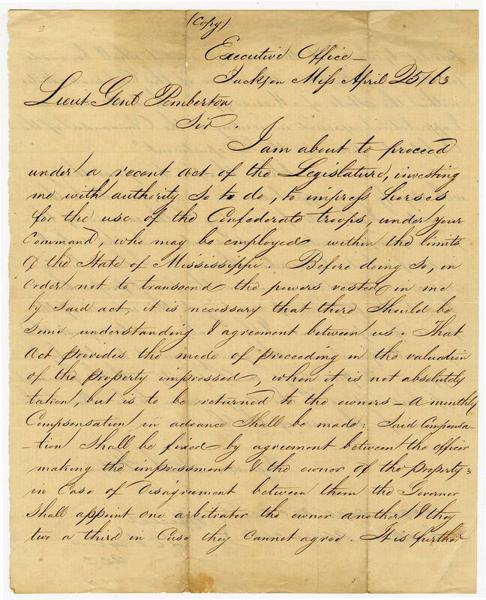 (Copy)
Executive Office —
Jackson Miss April 25/63
Lieut. Genl Pemberton
Sir.
I am about to proceed
under a recent act of the Legislature, investing
me with authority so to do, to impress horses
for the use of the Confederate troops, under your
Command, who may be employed within the limits
of the State of Mississippi. Before doing so, in
order not to transcend the powers vested in me
by said act, it is necessary that there should be
some understanding & agreement between us. That
Act provides the mode of proceeding in the valuation
of the property impressed, when it is not absolutely
taken, but is to be returned to the owners — a monthly
Compensation in advance shall be made: Said Compensa-
-tion shall be fixed by agreement between the officer
making the impressment & the owner of the property;
in case of disagreement between them the Governor
shall appoint one arbitrator the owner another & they
two a third in case they cannot agree. It is further